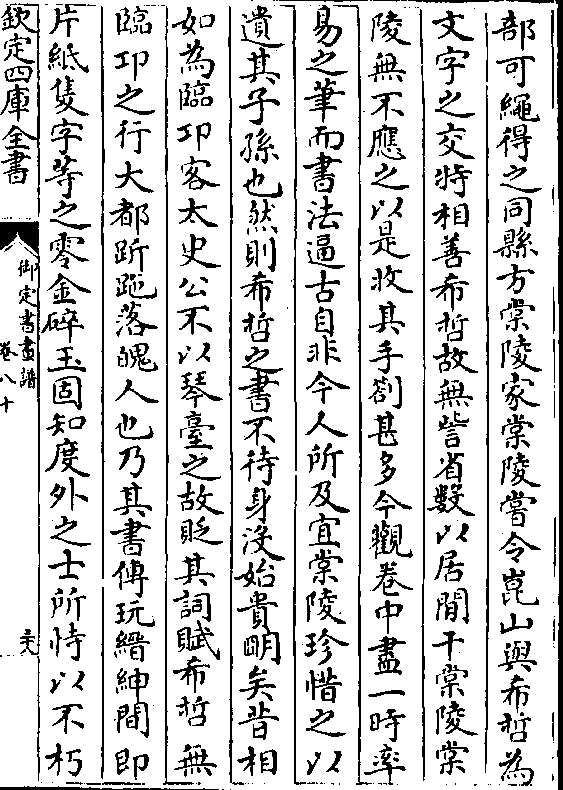 部可繩得之同縣方棠陵家棠陵嘗令崑山與希哲為
文字之交特相善希哲故無訾省數以居間干棠陵棠
陵無不應之以是收其手劄甚多今觀卷中盡一時率
易之筆而書法逼古自非今人所及宜棠陵珍惜之以
遺其子孫也然則希哲之書不待身沒始貴眀矣昔相
如為臨卭客太史公不以琴臺之故貶其詞賦希哲無
臨卭之行大都跅跑落魄人也乃其書傳玩縉紳間即
片紙隻字等之零金碎玉固知度外之士所恃以不朽
欽定四庫全書
御定書畫譜
卷八十